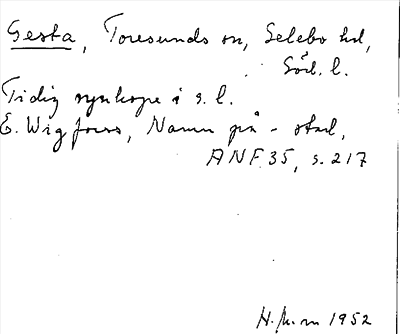 Gesta, Toresunds sn, Selebo hd,
Söd. l.
Tidig synkope i s. l.
E. Wigforss, Namn på -stad,
ANF. 35, s. 217
1952